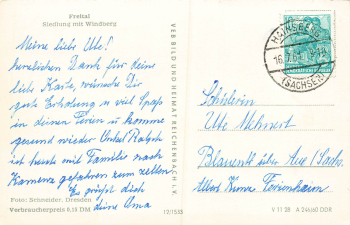 Freital
Siedlung mit Windberg
Meine liebe Ute!
herzlichen Dank für deine
lieb Karte, wünsche Dir
gute Erholung u viel Spaß
in deinen Ferien u komme
gesund wieder Onkel Ralph
ist heute mit Familie nach
Kamenz gefahren zum zelten
Es grüßt dich
deine Oma
Foto: Schneider, Dresden
Verbraucherpreis 0,15 DM
12/1533
VEB BILD UND HEIMAT REICHENBACH i. V.
HAINSBERG
(SACHSEN)
Schülerin
Ute Mehnert
Blauenthal über Aue/Sachs.
Ferienheim
V 11 28 A 246/60 DDR